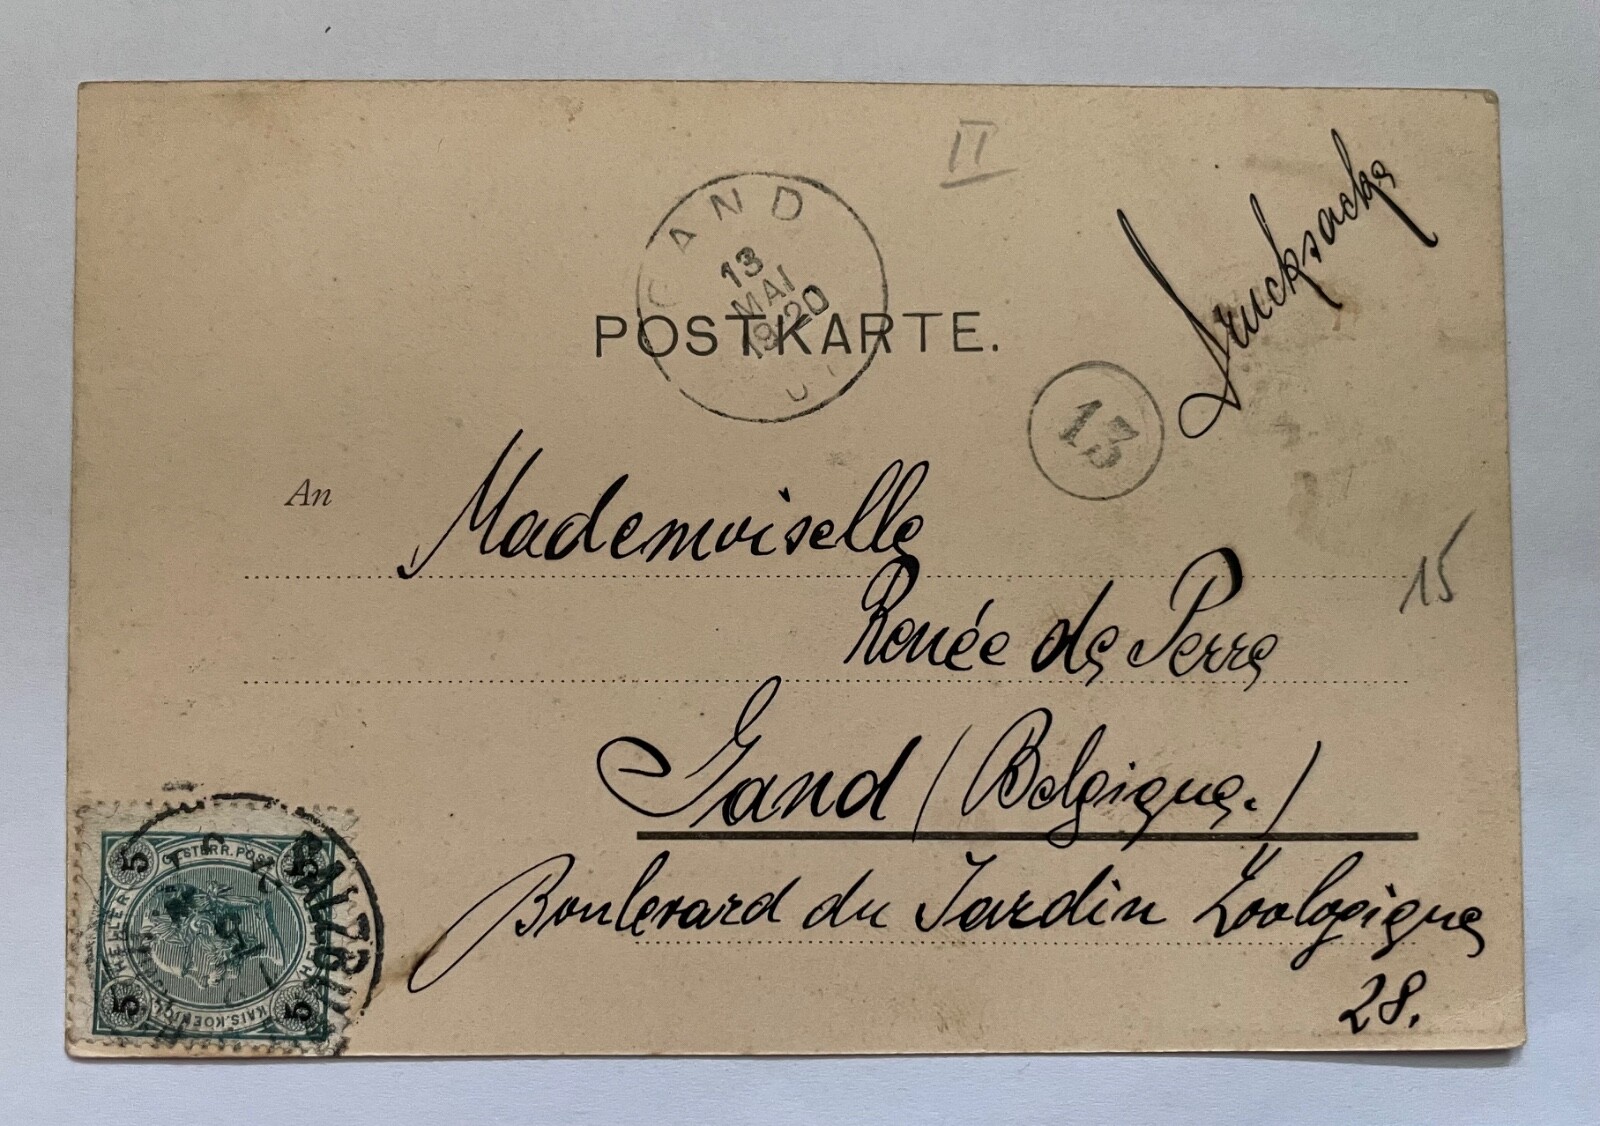 II
Drucksache
GAND
13
MAI
POSTKARTE.
13
An
Mademoiselle
Renée de Perre
15
Gand (Belgique.)
Boulevard du Jardin Zoologique
28.
5 OESTERR. POST 5
HELLER HELLER
5 KAIS. KOENIGL. 5
SALZBURG